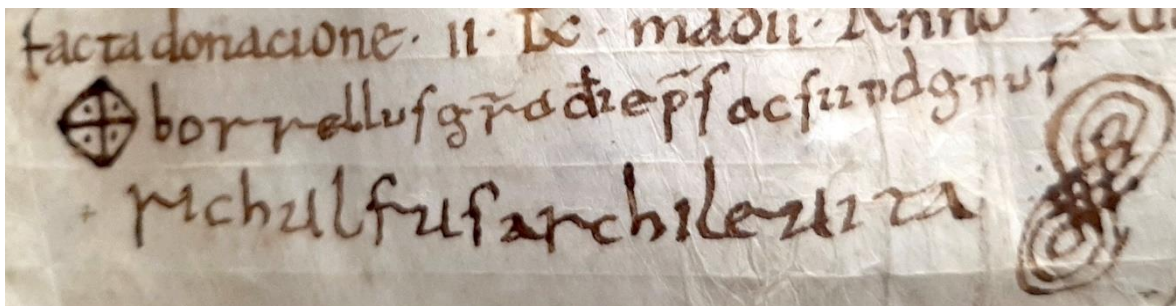 facta donacione · II · Id · madii · Anno · XVI
borrellus gr̄a dī ep̄s ac si indgnus
richulfus archileuita